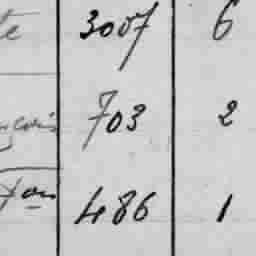 te 3007 6
703 2
486 1